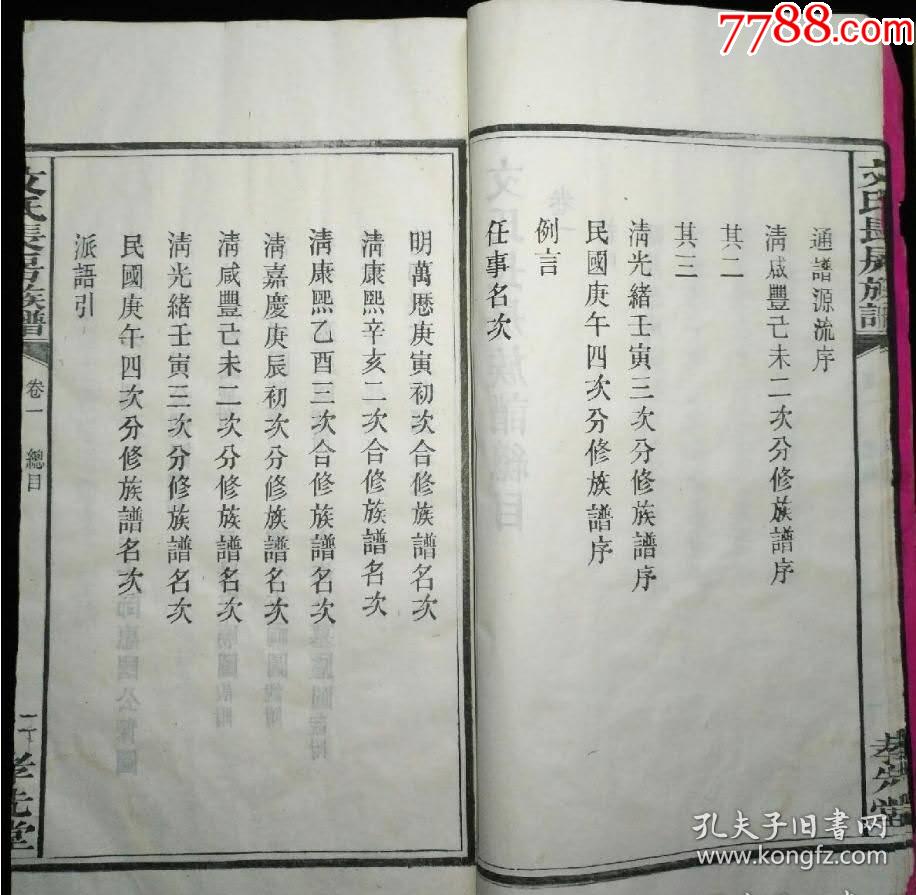 7788.com
文氏長房族譜
孝先堂
通譜源流序
淸咸豐己未二次分修族譜序
其二
其三
淸光緒壬寅三次分修族譜序
民國庚午四次分修族譜序
例言
任事名次
明萬歷庚寅初次合修族譜名次
淸康熙辛亥二次合修族譜名次
淸康熙乙酉三次合修族譜名次
淸嘉慶庚辰初次分修族譜名次
淸咸豐己未二次分修族譜名次
淸光緒壬寅三次分修族譜名次
民國庚午四次分修族譜名次
派語引
文氏長房族譜
卷一
總目
二
孝先堂
孔夫子旧书网
www.kongfz.com